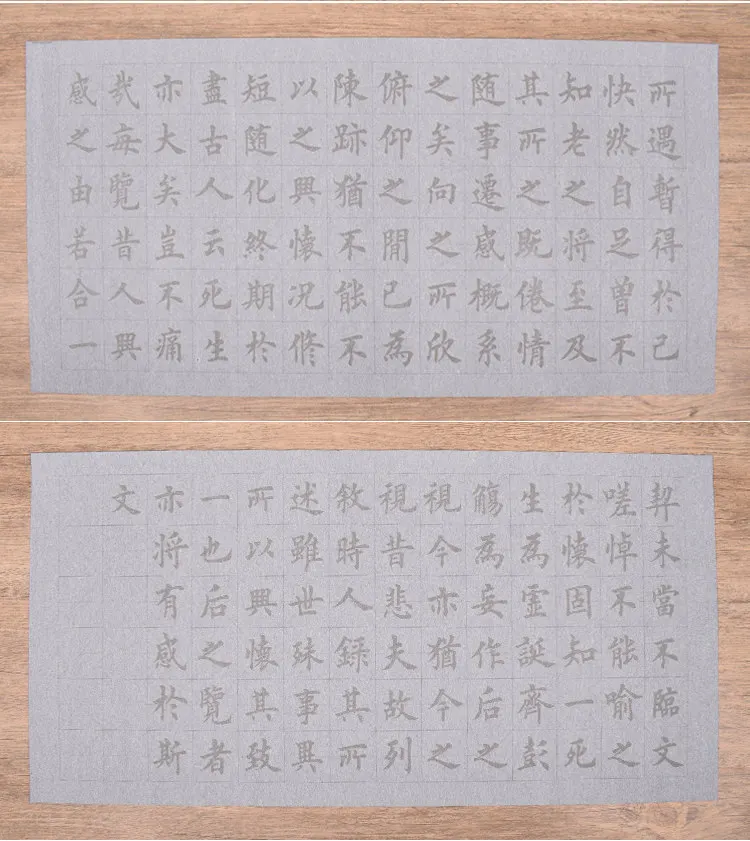 所遇暫得於己
快然自足曾不
知老之將至及
其所之既倦情
随事遷感概系
之矣向之所欣
俯仰之閒已為
陳跡猶不能不
以之興懷况修
短随化終期於
盡古人云死生
亦大矣豈不痛
哉每覽昔人興
感之由若合一
契未當不臨文
嗟悼不能喻之
於懷固知一死
生為虚誕齊彭
觴為妄作后之
視今亦猶今之
視昔悲夫故列
敘時人録其所
述雖世殊事異
所以興懷其致
一也后之覽者
亦將有感於斯
文